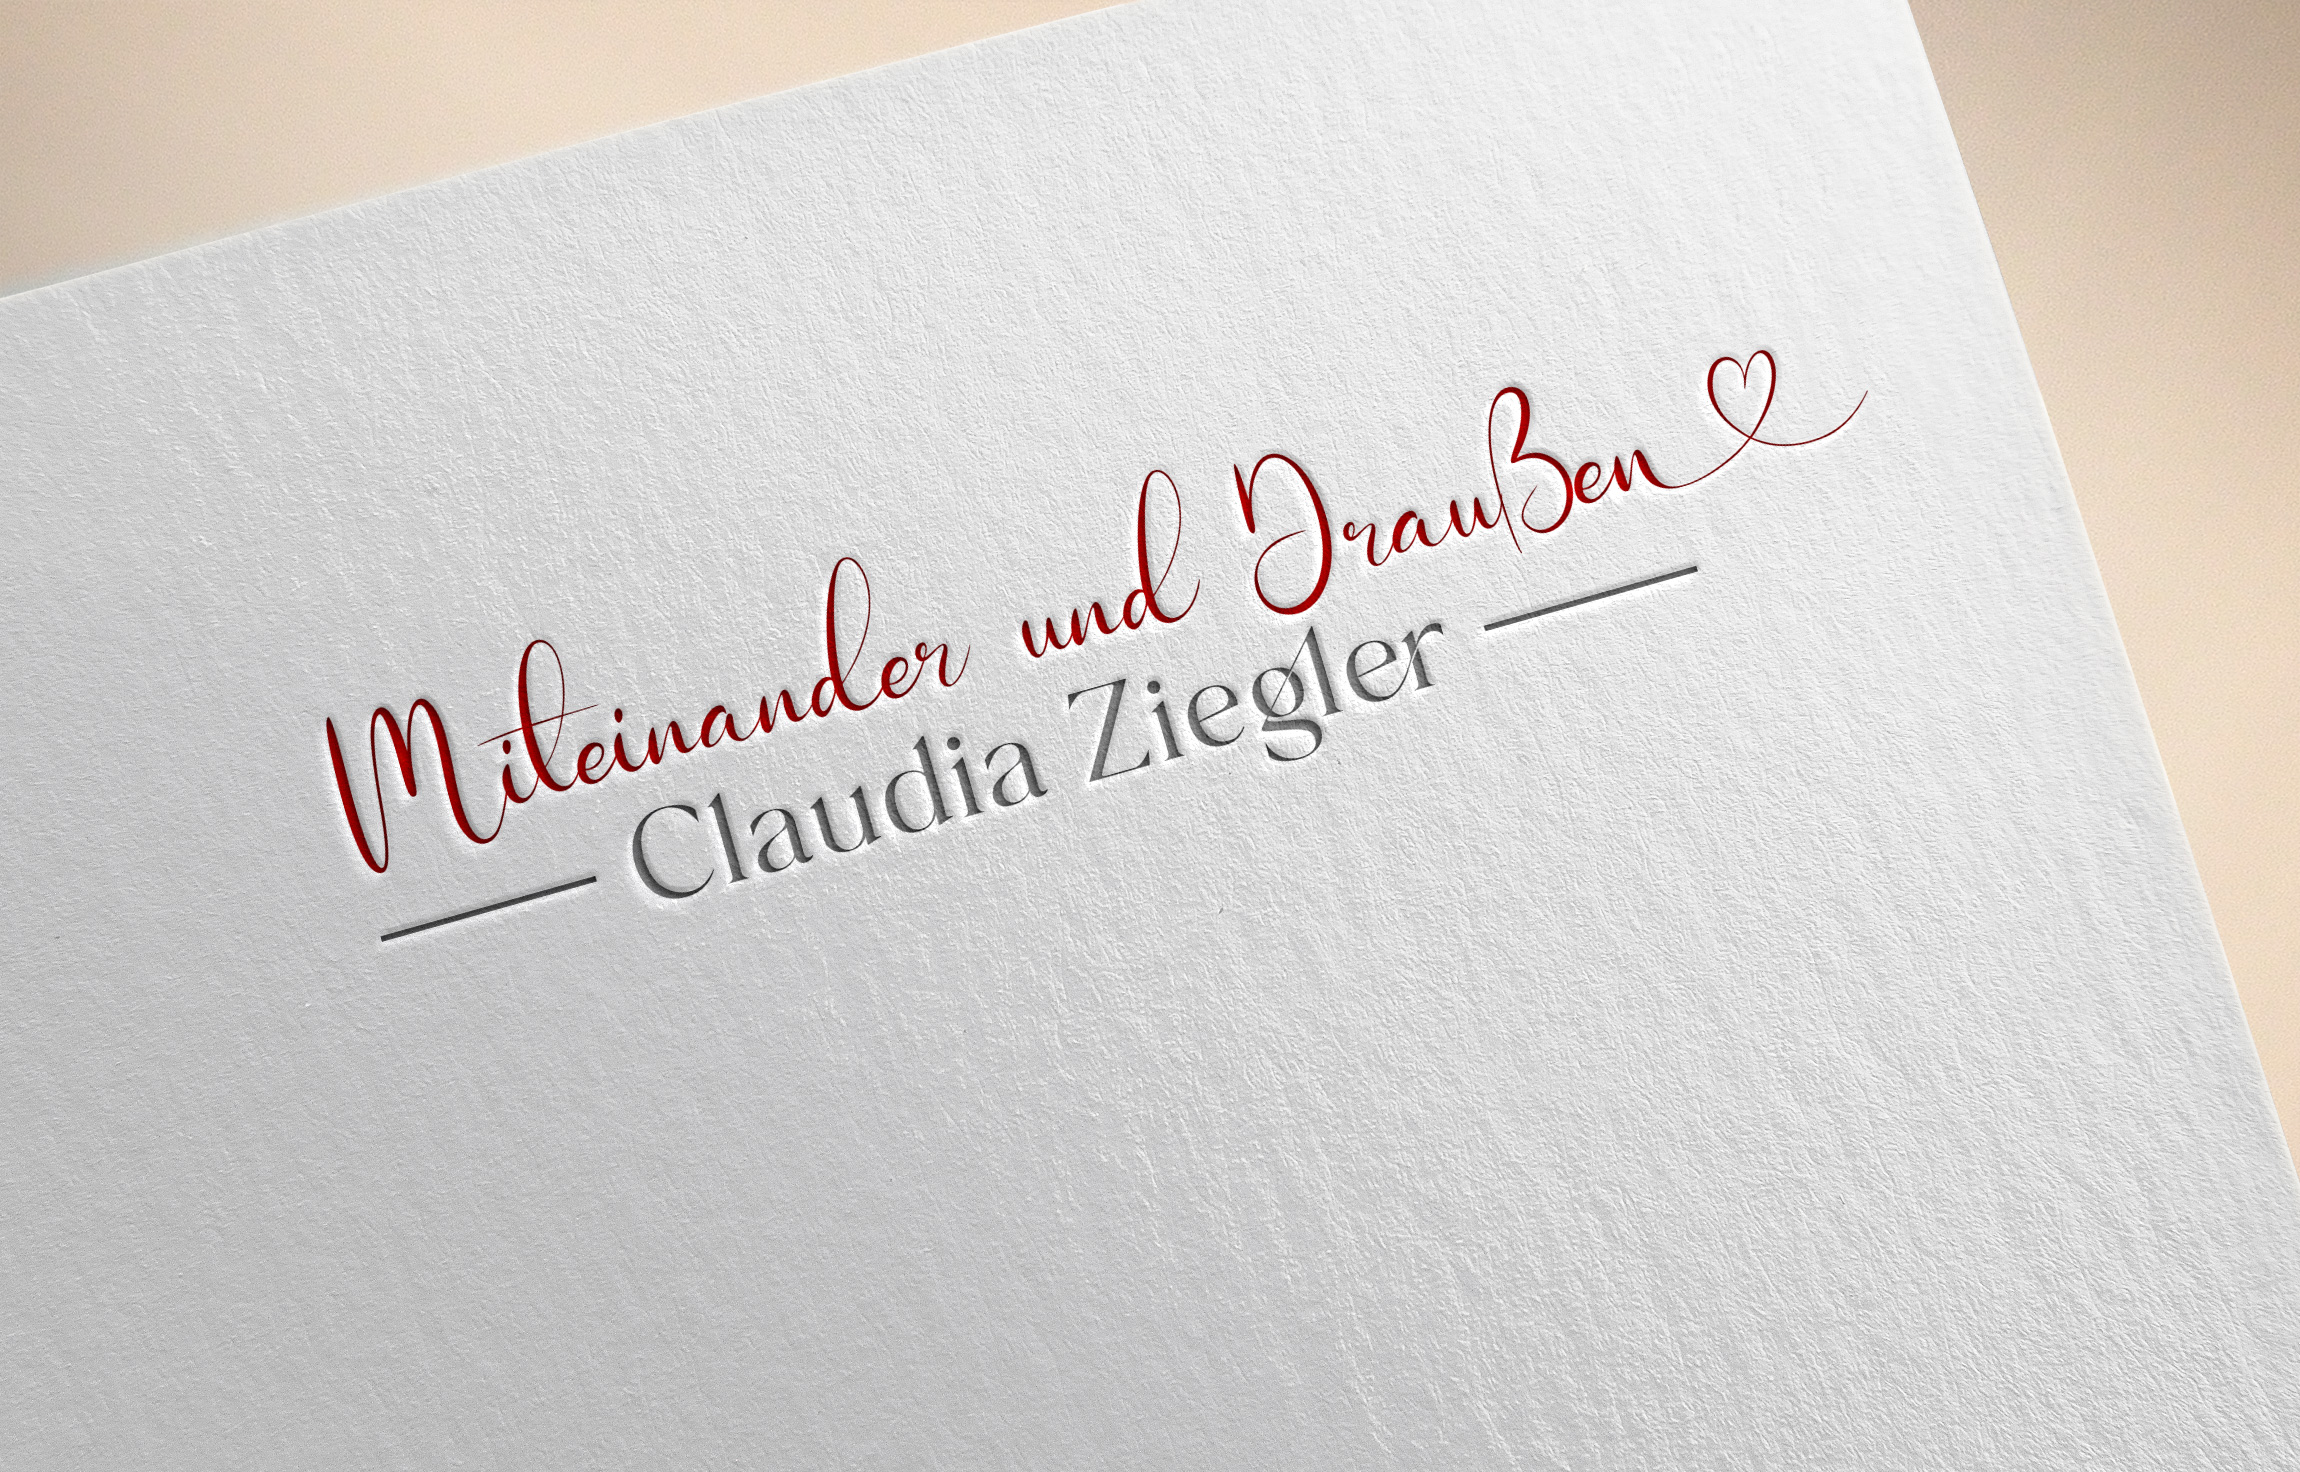 Miteinander und Draußen
Claudia Ziegler